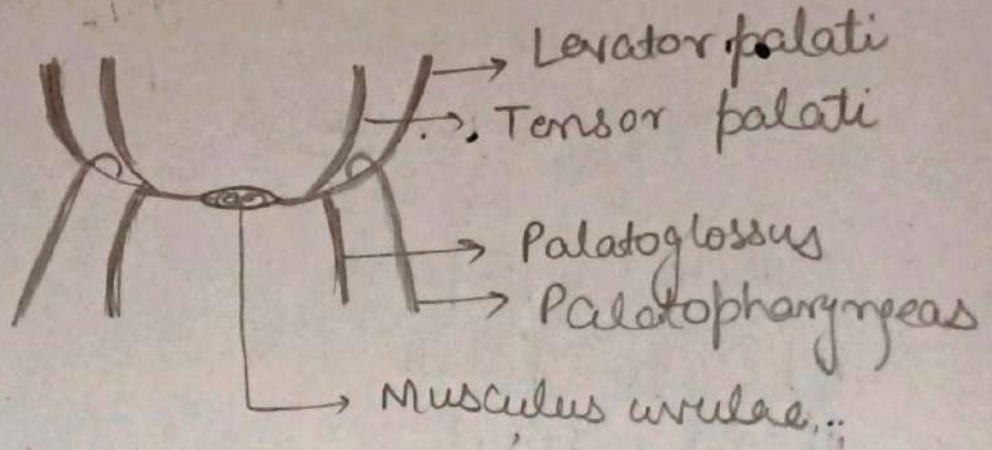 Levator palati
Tensor palati
Palatoglossus
Palatopharyngeas
Musculus uvulae...